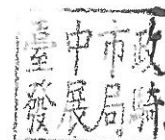 臺中市政
發展局騎